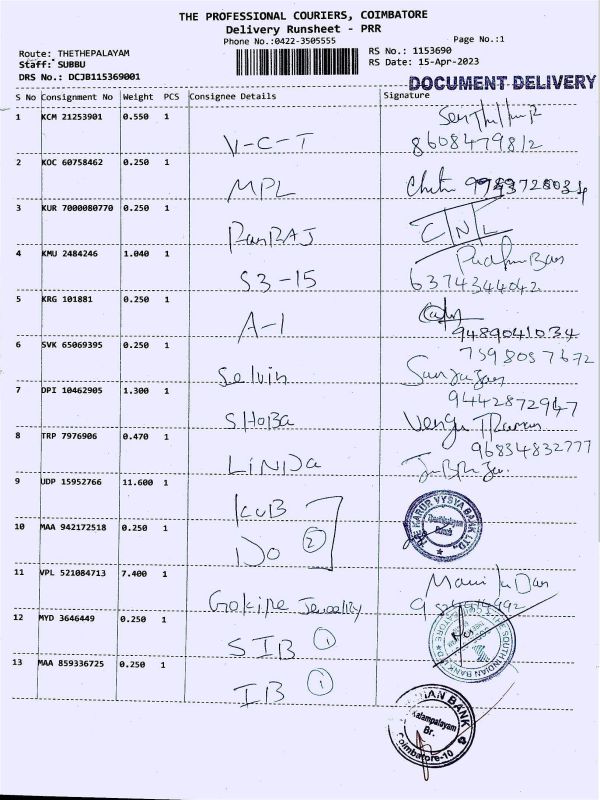 THE PROFESSIONAL COURIERS, COIMBATORE
Delivery Runsheet - PRR
Phone No.:0422-3505555
Page No.:1
Route: THETHEPALAYAM
Staff: SUBBU
DRS No.: DCJB115369001
RS No.: 1153690
RS Date: 15-Apr-2023
DOCUMENT DELIVERY
S No Consignment No Weight PCS Consignee Details Signature
1 KCM 21253901 0.550 1
V-C-T 8608479812
2 KOC 60758462 0.250 1
MPL
3 KUR 7000080770 0.250 1
RamRAJ CNL
4 KMU 2484246 1.040 1
S3-15 6374344042
5 KRG 101881 0.250 1
A-1 9489041034
6 SVK 65069395 0.250 1 7598057672
Selvin
7 DPI 10462905 1.300 1 9442872947
SHOBA
8 TRP 7976906 0.470 1 96834832777
LINDa
9 UDP 15952766 11.600 1
KVB
THE KARUR VYSYA BANK LTD.
10 MAA 942172518 0.250 1
Do 2
11 VPL 521084713 7.400 1
Jewellry
12 MYD 3646449 0.250 1
SIB 1
SOUTH INDIAN BANK
13 MAA 859336725 0.250 1
IB 1
INDIAN BANK
Kalampalayam
Br.
Coimbatore-10